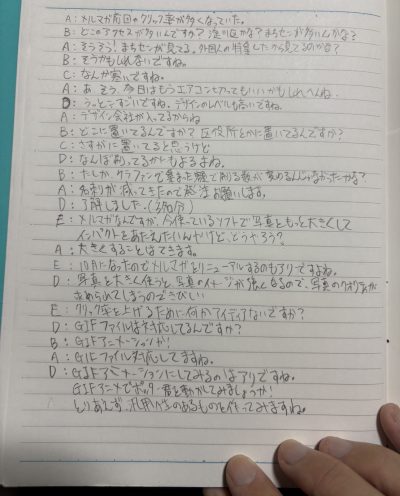 A：メルマガ前回のクリック率が多くなっていた。
B：どこのアクセスが多いんですか？淀川区かな？まちセンが多いんかな？
A：そうそう！まちセンが見てる。外国人の特集したから見てるのかな？
B：そうかもしれないですね。
C：なんか寒いですね。
A：あ、そう、今日はもうエアコン切ってもいいかもしれへんね。
D：うっとこすごいですね。デザインのレベルも高いですね。
A：デザイン会社が入ってるからね
B：どこに置いてるんですか？区役所とかに置いてるんですか？
C：さすがに置いてると思うけど
D：なんぼ刷ってるかにもよるよね。
B：たしか、クラファンで集まった額で刷る数が変わるんじゃなかったかな？
A：名刺が減ってきたので発注お願いします。
D：了解しました。(3名分)
E：メルマガなんですが、今使っているソフトで写真をもっと大きくして
インパクトをあたえたいんやけど、どうやろう？
A：大きくすることはできます。
E：10月になったのでメルマガをリニューアルするのもアリですよね。
D：写真を大きく使うと、写真のイメージが強くなるので、写真のクオリティが
求められてしまうのできびしい
E：クリック率を上げるために何かアイディアないですか？
D：GIFファイルは対応してるんですか？
B：GIFアニメーションか！
A：GIFファイル対応してますね。
D：GIFアニメーションにしてみるのはアリですね。
GIFアニメで君を動かしてみましょうか！
とりあえず、汎用性のあるものを作ってみますね。